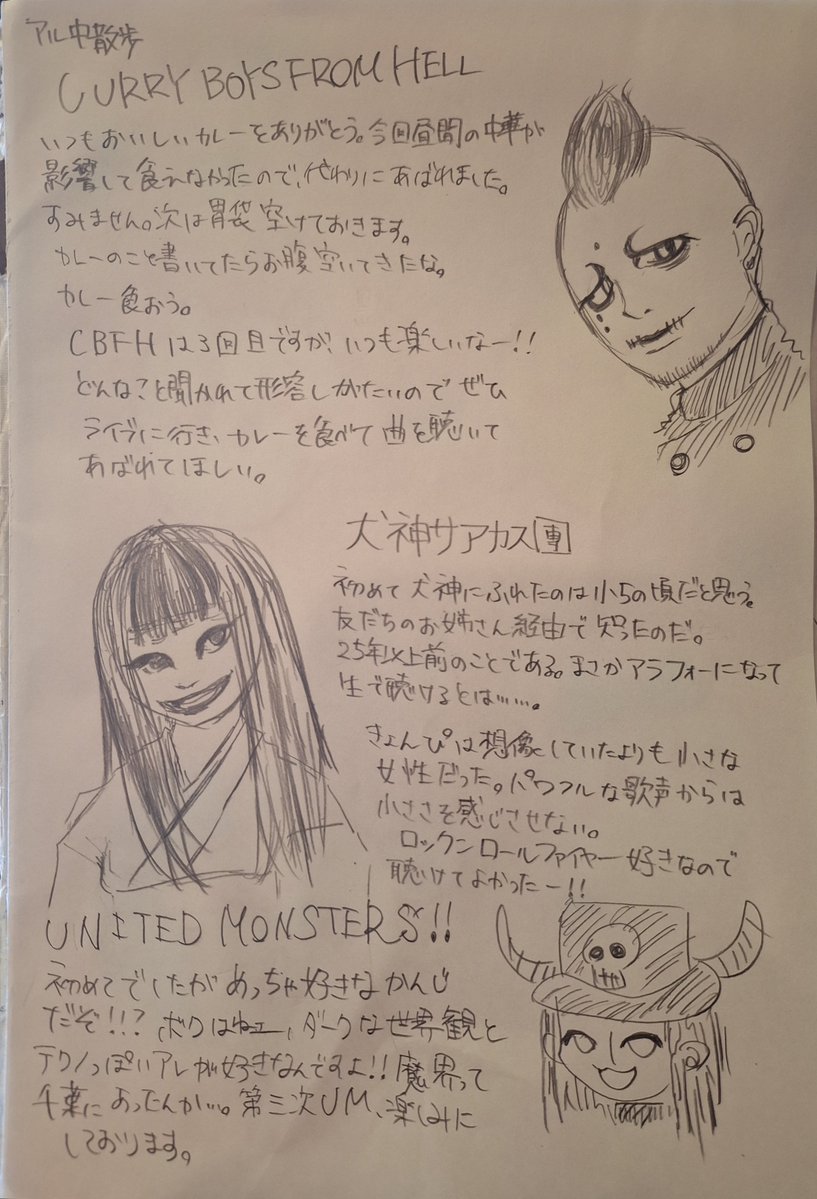 アル中散歩
CURRY BOYS FROM HELL
いつもおいしいカレーをありがとう。今回昼間の中華が
影響して食えなかったので、代わりにあばれました。
すみません。次は胃袋空けておきます。
カレーのこと書いてたらお腹空いてきたな。
カレー食おう。
CBFHは3回目ですが、いつも楽しいなー!!
どんな?と聞かれて形容しがたいのでぜひ
ライブに行き、カレーを食べて曲を聴いて
あばれてほしい。
犬神サアカス團
初めて犬神にふれたのは小5の頃だと思う。
友だちのお姉さん経由で知ったのだ。
25年以上前のことである。まさかアラフォーになって
生で聴けるとは……。
きょんぴは想像していたよりも小さな
女性だった。パワフルな歌声からは
小ささを感じさせない。
ロックンロールファイヤー好きなので
聴けてよかったー!!
UNITED MONSTERS!!
初めてでしたがめっちゃ好きなかんじ
だぞ!!? ボクはねェ、ダークな世界観と
テクノっぽいアレが好きなんですよ!! 魔界って
千葉にあったんか…。第三次UM、楽しみに
しております。